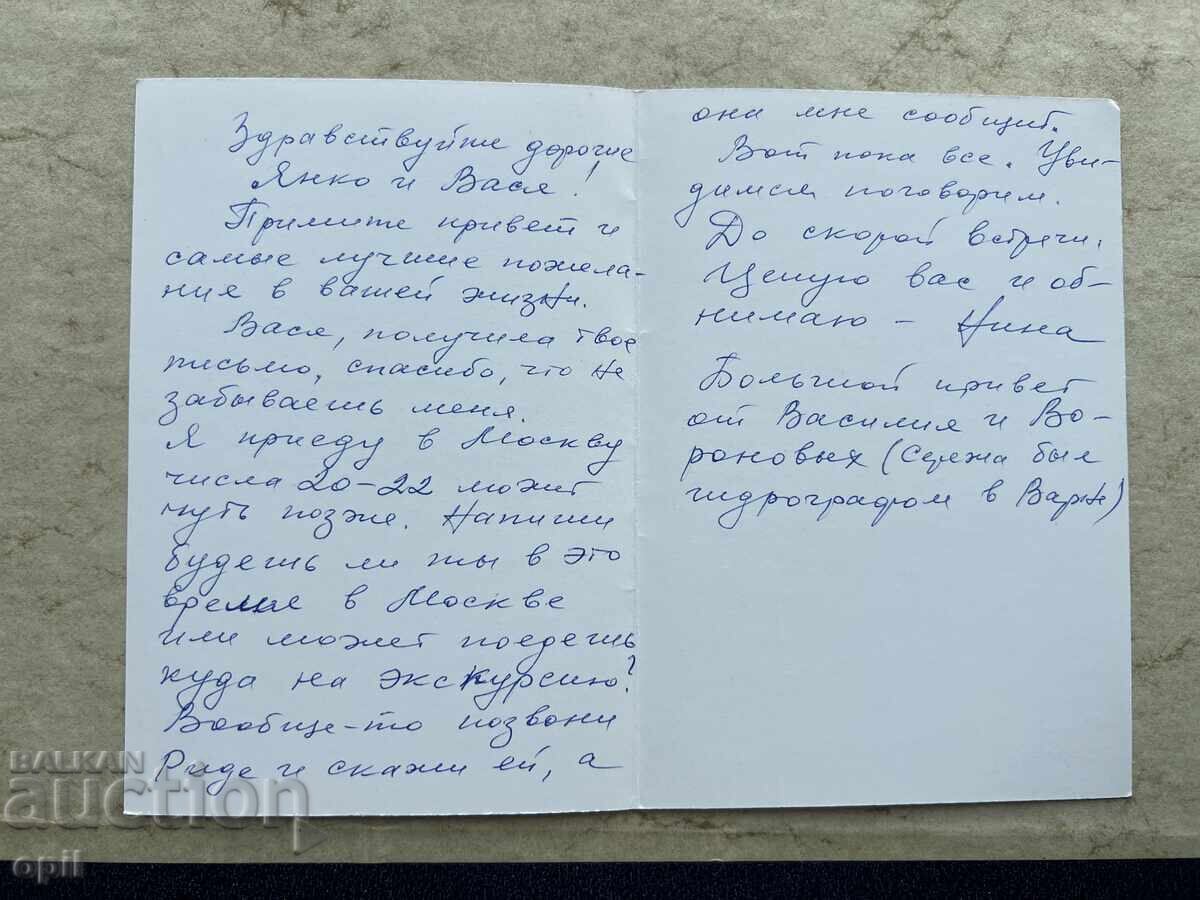 Здравствуйте дорогие
Янко и Вася!
Примите привет и
самые лучшие пожела-
ния в вашей жизни.
Вася, получила твое
письмо, спасибо, что не
забываешь меня.
Я приеду в Москву
числа 20-22 может
чуть позже. Напиши
будешь ли ты в это
время в Москве
или может поедешь
куда на экскурсию?
Вообще-то позвони
Риде и скажи ей, а
она мне сообщит.
Вот пока все. Уви-
димся поговорим.
До скорой встречи.
Целую вас и об-
нимаю - Нина
Большой привет
от Василия и Во-
роновых (Сережа был
гидрографом в Варн)
BALKAN
auction
opil